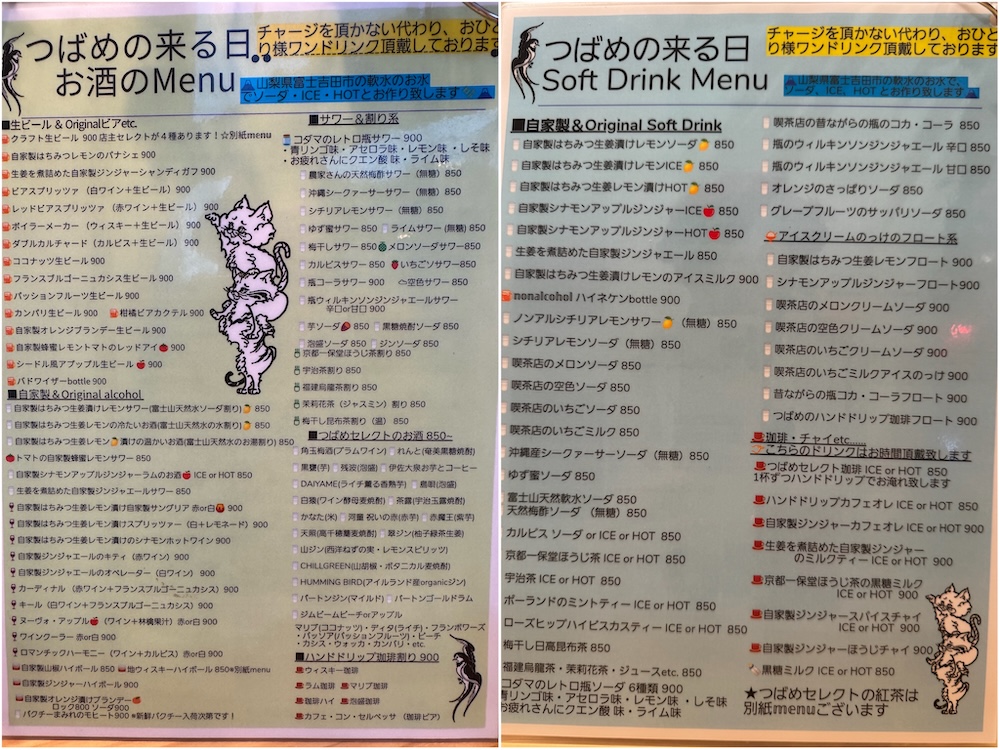 つばめの来る日
お酒のMenu
チャージを頂かない代わり、おひと
り様ワンドリンク頂戴しております
山梨県富士吉田市の軟水のお水
でソーダ・ICE・HOTとお作り致します
■生ビール & Originalビアetc.
クラフト生ビール 900 店主セレクトが4種あります!☆別紙menu
自家製はちみつレモンのパナシェ 900
生姜を煮詰めた自家製ジンジャーシャンディガフ 900
ビアスプリッツァ (白ワイン+生ビール) 900
レッドビアスプリッツァ (赤ワイン+生ビール) 900
ボイラーメーカー (ウィスキー+生ビール) 900
ダブルカルチャード (カルピス+生ビール) 900
ココナッツ生ビール 900
フランスブルゴーニュカシス生ビール 900
パッションフルーツ生ビール 900
カンパリ生ビール 900 柑橘ビアカクテル 900
自家製オレンジブランデー生ビール 900
自家製蜂蜜レモントマトのレッドアイ 900
シードル風アプップル生ビール 900
バドワイザーbottle 900
■自家製&Original alcohol
自家製はちみつ生姜漬けレモンサワー(富士山天然水ソーダ割り) 850
自家製はちみつ生姜レモンの冷たいお酒(富士山天然水の水割り) 850
自家製はちみつ生姜レモン漬けの温かいお酒(富士山天然水のお湯割り) 850
トマトの自家製蜂蜜レモンサワー 850
自家製シナモンアップルジンジャーラムのお酒 ICE or HOT 850
生姜を煮詰めた自家製ジンジャエールサワー 850
自家製はちみつ生姜レモン漬け自家製サングリア 赤or白 900
自家製はちみつ生姜レモン漬けスプリッツァー (白+レモネード) 900
自家製はちみつ生姜レモン漬けのシナモンホットワイン 900
自家製ジンジャエールのキティ (赤ワイン) 900
自家製ジンジャエールのオペレーター (白ワイン) 900
カーディナル (赤ワイン+フランスブルゴーニュカシス) 900
キール (白ワイン+フランスブルゴーニュカシス) 900
ヌーヴォ・アップル (ワイン+林檎果汁) 赤or白 900
ワインクーラー 赤or白 900
ロマンチックハーモニー (ワイン+カルピス) 赤or白 900
自家製山椒ハイボール 850 地ウィスキーハイボール 850※別紙menu
自家製ジンジャーハイボール 900
自家製オレンジ漬けブランデー
ロック800 ソーダ900
パクチーまみれのモヒート900 ※新鮮パクチー入荷次第です!
■サワー&割り系
コダマのレトロ瓶サワー 900
・青リンゴ味・アセロラ味・レモン味 ・しそ味
・お疲れさんにクエン酸 味・ライム味
農家さんの天然梅サワー (無糖) 850
沖縄シークァーサーサワー (無糖) 850
シチリアレモンサワー (無糖) 850
ゆず蜜サワー 850 ライムサワー (無糖) 850
梅干しサワー 850 メロンソーダサワー 850
カルピスサワー 850 いちごソサワー850
瓶コーラサワー 900 空色サワー 850
瓶ウィルキンソンジンジャエールサワー
辛口or甘口 900
芋ソーダ 850 黒糖焼酎ソーダ 850
泡盛ソーダ 850 ジンソーダ 850
京都一保堂ほうじ茶割り 850
宇治茶割り 850
福建烏龍茶割り 850
茉莉花茶 (ジャスミン) 割り 850
梅干し昆布茶割り (温) 850
■つばめセレクトのお酒 850~
角玉梅酒(プラムワイン) れんと(奄美黒糖焼酎)
黒甕(芋) 残波(泡盛) 伊佐大泉お芋とコーヒー
DAIYAME(ライチ薫る香熟芋) 島唄(泡盛)
白猿(ワイン酵母麦焼酎) 茶露(宇治玉露焼酎)
かなた(米) 河童 祝いの赤(赤芋) 赤魔王(紫芋)
天照(高千穂蕎麦焼酎) 翠ジン(柚子緑茶生姜)
山ジン(西洋ねずの実・レモンスピリッツ)
CHILLGREEN(山胡椒・ボタニカル麦焼酎)
HUMMING BIRD(アイルランド産organicジン)
バートンジン(マイルド) バートンゴールドラム
ジムビームピーチorアップル
マリブ(ココナッツ)・ディタ(ライチ)・フランボワーズ
・パッソア(パッションフルーツ)・ピーチ
・カシス・ウォッカ・カンパリ・etc.
■ハンドドリップ珈琲割り 900
ウィスキー珈琲
ラム珈琲 マリブ珈琲
珈琲ハイ 泡盛珈琲
カフェ・コン・セルベッサ (珈琲ビア)
つばめの来る日
Soft Drink Menu
チャージを頂かない代わり、おひと
り様ワンドリンク頂戴しております
山梨県富士吉田市の軟水のお水で、
ソーダ、ICE、HOTとお作り致します
■自家製&Original Soft Drink
自家製はちみつ生姜漬けレモンソーダ 850
自家製はちみつ生姜漬けレモンICE 850
自家製はちみつ生姜レモン漬けHOT 850
自家製シナモンアップルジンジャーICE 850
自家製シナモンアップルジンジャーHOT 850
生姜を煮詰めた自家製ジンジャエール 850
自家製はちみつ生姜漬けレモンのアイスミルク 900
nonalcohol ハイネケンbottle 900
ノンアルシチリアレモンサワー (無糖) 850
シチリアレモンソーダ (無糖) 850
喫茶店のメロンソーダ 850
喫茶店の空色ソーダ 850
喫茶店のいちごソーダ 850
喫茶店のいちごミルク 850
沖縄産シークァーサーソーダ (無糖) 850
ゆず蜜ソーダ 850
富士山天然軟水ソーダ 850
天然梅ソーダ (無糖) 850
カルピス ソーダ or ICE or HOT 850
京都一保堂ほうじ茶 ICE or HOT 850
宇治茶 ICE or HOT 850
ポーランドのミントティー ICE or HOT 850
ローズヒップハイビスカスティー ICE or HOT 850
梅干し日高昆布茶 850
福建烏龍茶・茉莉花茶・ジュースetc. 850
コダマのレトロ瓶ソーダ 6種類 900
青リンゴ味・アセロラ味・レモン味 ・しそ味
お疲れさんにクエン酸 味・ライム味
喫茶店の昔ながらの瓶のコカ・コーラ 850
瓶のウィルキンソンジンジャエール 辛口 850
瓶のウィルキンソンジンジャエール 甘口 850
オレンジのさっぱりソーダ 850
グレープフルーツのサッパリソーダ 850
アイスクリームのっけのフロート系
自家製はちみつ生姜レモンフロート 900
シナモンアップルジンジャーフロート900
喫茶店のメロンクリームソーダ 900
喫茶店の空色クリームソーダ 900
喫茶店のいちごクリームソーダ 900
喫茶店のいちごミルクアイスのっけ 900
昔ながらの瓶コカ・コーラフロート 900
つばめのハンドドリップ珈琲フロート 900
■珈琲・チャイetc.....
こちらのドリンクはお時間頂戴致します
つばめセレクト珈琲 ICE or HOT 850
1杯ずつハンドドリップでお淹れ致します
ハンドドリップカフェオレ ICE or HOT 900
自家製ジンジャーカフェオレ ICE or HOT 900
生姜を煮詰めた自家製ジンジャー
のミルクティー ICE or HOT 900
京都一保堂ほうじ茶の黒糖ミルク
ICE or HOT 900
自家製ジンジャースパイスチャイ
ICE or HOT 900
自家製ジンジャーほうじチャイ 900
黒糖ミルク ICE or HOT 850
★つばめセレクトの紅茶は
別紙menuございます